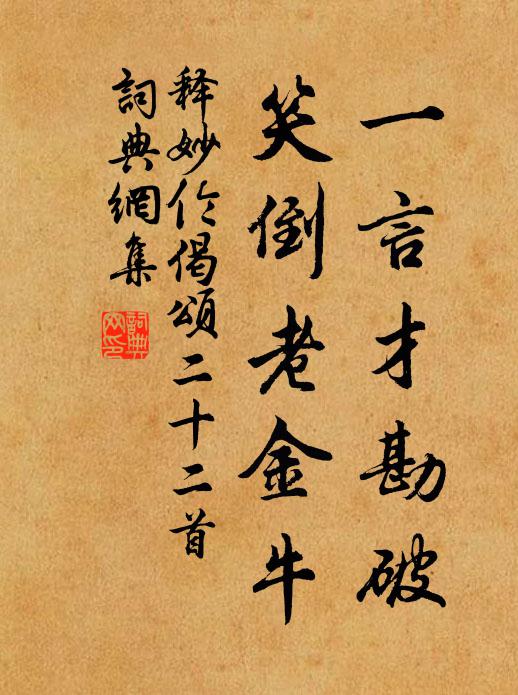 一言才勘破
笑倒老金牛
释妙伦偈頌二十二首
詞典網集
詞典网印